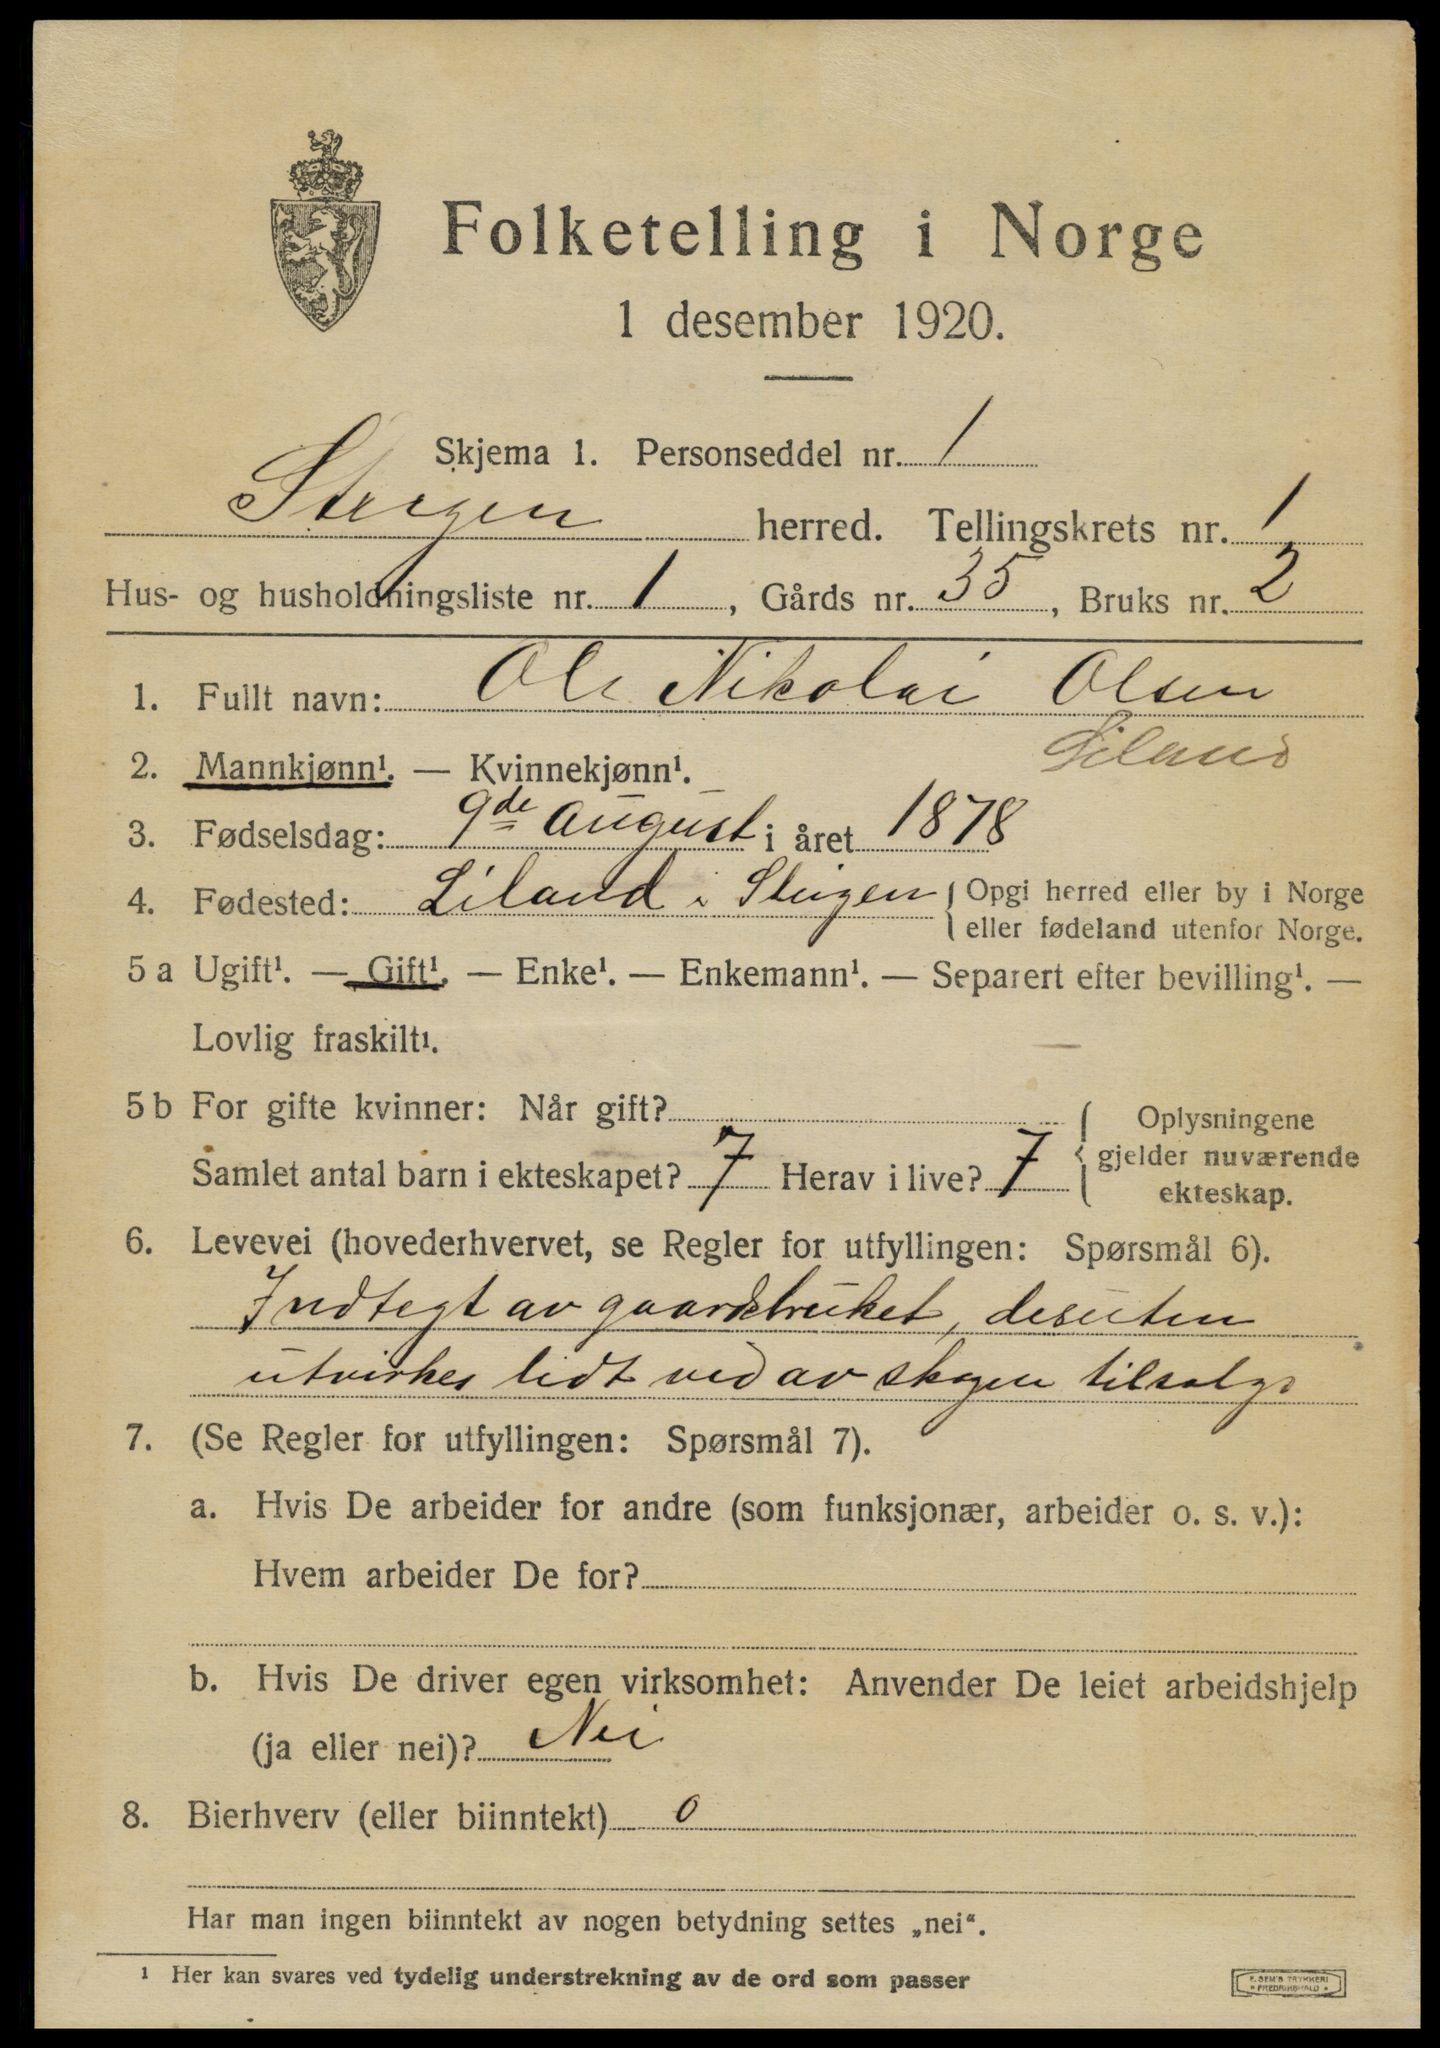 Folketelling i Norge
1 desember 1920.
Skjema 1. Personseddel nr. 1
Steigen herred. Tellingskrets nr. 1
Hus- og husholdningsliste nr. 1, Gårds nr. 35, Bruks nr. 2
1. Fullt navn: Ole Nikolai Olsen
Liland
2. Mannkjønn¹. — Kvinnekjønn¹.
3. Fødselsdag: 9de August i året 1878
4. Fødested: Liland i Steigen { Opgi herred eller by i Norge
eller fødeland utenfor Norge.
5 a Ugift¹. — Gift¹. — Enke¹. — Enkemann¹. — Separert efter bevilling¹. —
Lovlig fraskilt¹.
5 b For gifte kvinner: Når gift?
Samlet antal barn i ekteskapet? 7 Herav i live? 7
{ Oplysningene
gjelder nuværende
ekteskap.
6. Levevei (hovederhvervet, se Regler for utfyllingen: Spørsmål 6).
Indtegt av gaardsbruket, desuten
utvirkes lidt ved av skogen tilsalgs
7. (Se Regler for utfyllingen: Spørsmål 7).
a. Hvis De arbeider for andre (som funksjonær, arbeider o. s. v.):
Hvem arbeider De for?
b. Hvis De driver egen virksomhet: Anvender De leiet arbeidshjelp
(ja eller nei)? Nei
8. Bierhverv (eller biinntekt) 0
Har man ingen biinntekt av nogen betydning settes „nei“.
¹ Her kan svares ved tydelig understrekning av de ord som passer
E. SEM'S TRYKKERI
* FREDRIKSHALD *